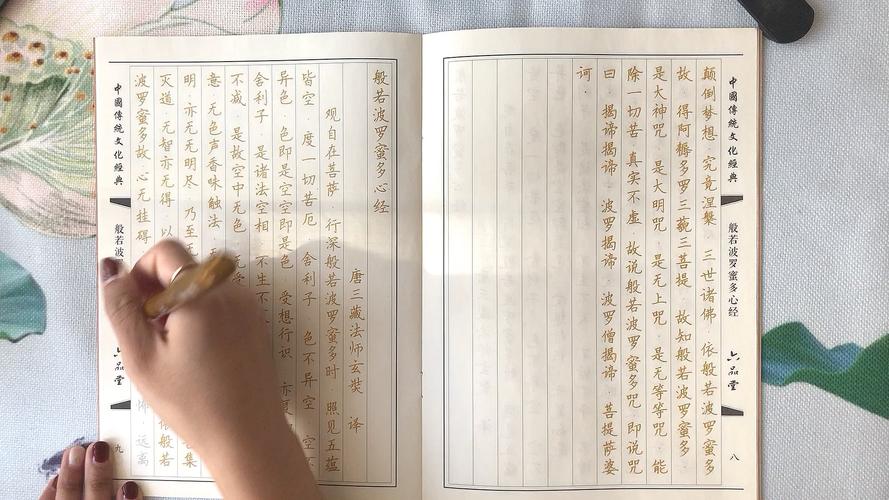 中國傳統文化經典
般若波罗蜜多心经
六品堂
八
颠倒梦想·究竟涅槃·三世诸佛·依般若波罗蜜多
故·得阿耨多罗三藐三菩提·故知般若波罗蜜多
是大神咒·是大明咒·是无上咒·是无等等咒·能
除一切苦·真实不虚·故说般若波罗蜜多咒·即说咒
曰·揭谛揭谛·波罗揭谛·波罗僧揭谛·菩提萨婆
诃·
般若波罗蜜多心经
唐三藏法师玄奘 译
观自在菩萨·行深般若波罗蜜多时·照见五蕴
皆空·度一切苦厄·舍利子·色不异空·空
异色·色即是空空即是色·受想行识·亦复
舍利子·是诸法空相·不生不
不减·是故空中无色·无受
意·无色声香味触法
明·亦无无明尽·乃至 集
灭道·无智亦无得·以 依般若
波罗蜜多故·心无挂碍 怖·远离
中國傳統文化經典
般若波罗
六品堂
九